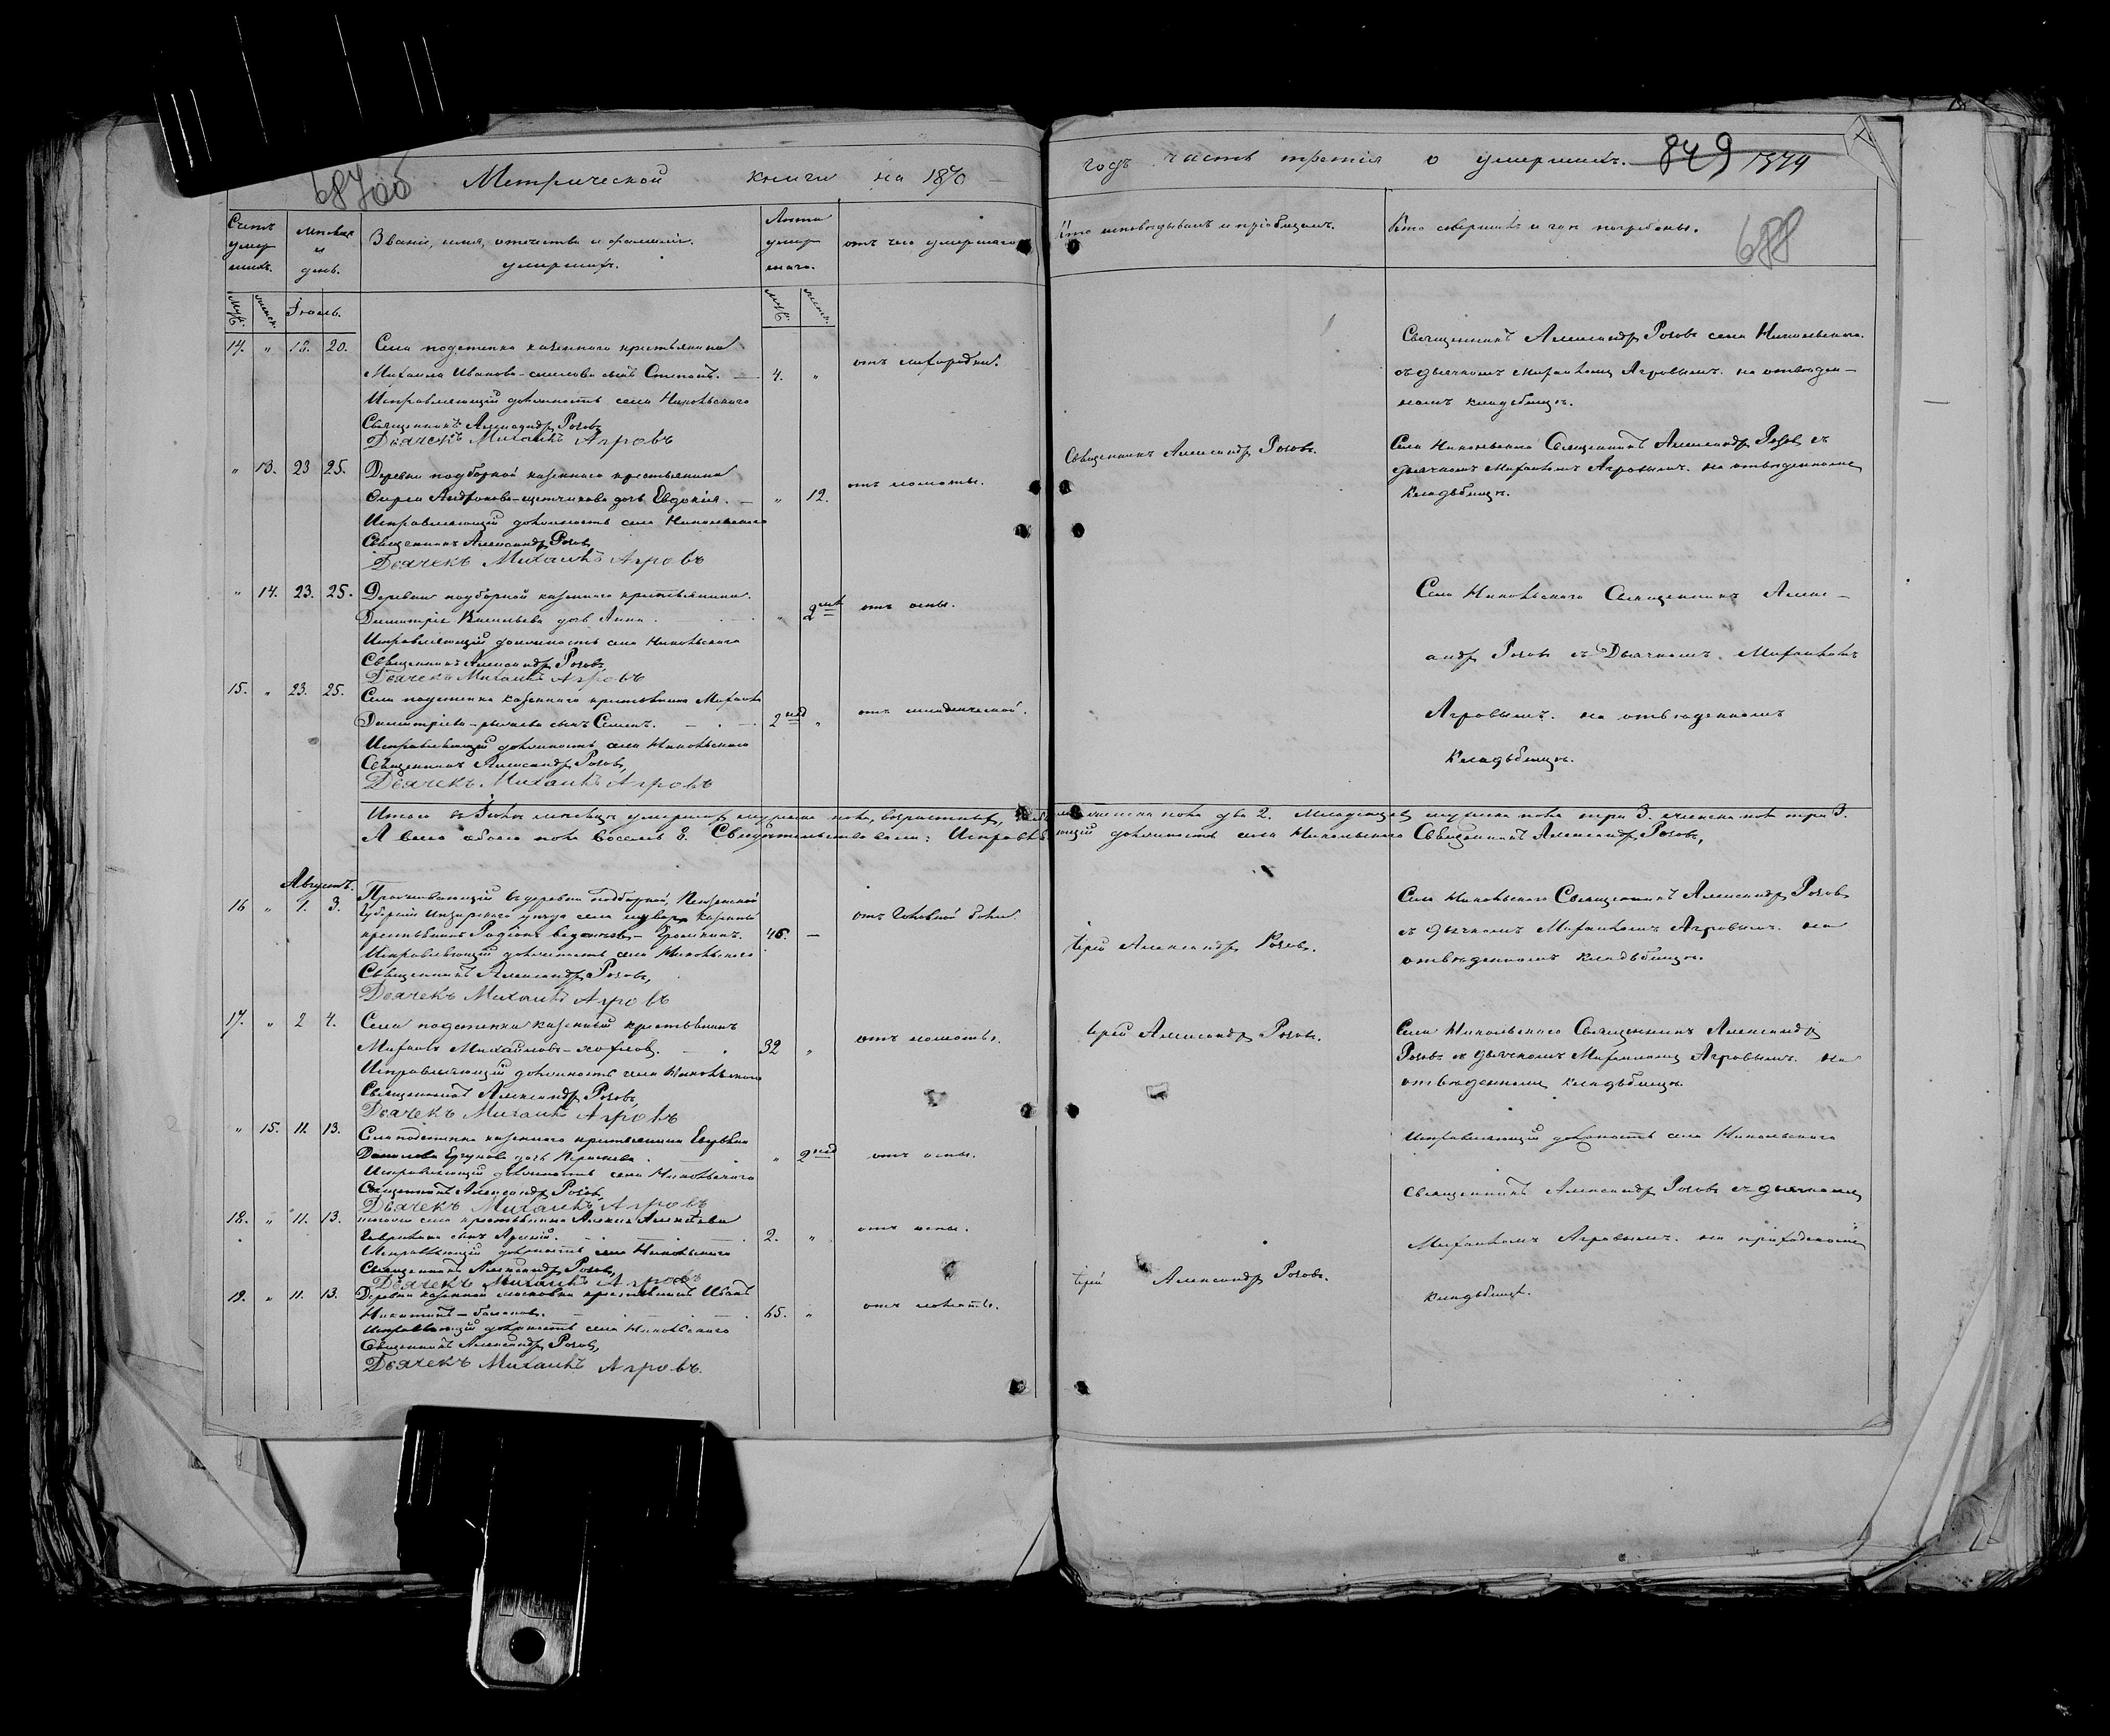 Метрической книги на 1870
годъ часть третія о умершихъ. 849 1374
688
Счетъ умер шихъ.
Мѣсяцъ и день.
Званіе, имя, отечество и фамилія умершихъ.
Лѣта умер шаго.
отъ чего умершаго
Кто исповѣдывалъ и пріобщалъ.
Кто совершалъ и гдѣ погребены.
Муж. женск. Іюль. муж. женс.
14. " 18. 20. Села подстепки казеннаго крестьянина
Михаила Иванова сынъ Степанъ. 4. " отъ лихорадки.
Исправляющій должность села Никольскаго
Священникъ Александръ Розовъ,
Дьячекъ Михаилъ Агровъ
Священникъ Александръ Розовъ села Никольскаго
съ дьячкомъ Михаиломъ Агровымъ на отведен-
номъ кладбищѣ.
" 13. 23 25. Деревни подборной казеннаго крестьянина
Андронова дочь Евдокія. " 12. отъ
Исправляющій должность села Никольскаго
Священникъ Александръ Розовъ
Дьячекъ Михаилъ Агровъ
Священникъ Александръ Розовъ.
Села Никольскаго Священникъ Александръ Розовъ съ
дьячкомъ Михаиломъ Агровымъ на отведенномъ
кладбищѣ.
" 14. 23. 25. Деревни подборной казеннаго крестьянина
Димитрія Васильева дочь Анна. " 2 отъ оспы.
Исправляющій должность села Никольскаго
Священникъ Александръ Розовъ,
Дьячекъ Михаилъ Агровъ
Села Никольскаго Священникъ Алекс-
андръ Розовъ съ Дьячкомъ Михаиломъ
Агровымъ на отведенномъ
кладбищѣ.
15. " 23. 25. Села подстепки казеннаго крестьянина Михаила
Димитріева сынъ Семенъ. 2 нед " отъ младенческой.
Исправляющій должность села Никольскаго
Священникъ Александръ Розовъ,
Дьячекъ Михаилъ Агровъ
Итого въ Іюлѣ мѣсяцѣ умершихъ мужеска пола, возрастныхъ, женска пола два 2. Младенцевъ мужска пола три 3. женска пола три 3.
А всего обоего пола восемь 8. Свидетельствовали: Исправляющій должность села Никольскаго Священникъ Александръ Розовъ,
Августъ.
16 " 1. 3. Проживающій въ деревни подборной, Пензенской
губерніи Инсарскаго уѣзда села казенный
крестьянинъ Родіонъ 46. — отъ головной боли
Исправляющій должность села Никольскаго
Священникъ Александръ Розовъ,
Дьячекъ Михаилъ Агровъ
Іерей Александръ Розовъ.
Села Никольскаго Священникъ Александръ Розовъ
съ дьячкомъ Михаиломъ Агровымъ на
отведенномъ кладбищѣ.
17. " 2 4. Села подстепки казенный крестьянинъ
Михаилъ Михайловъ 32 " отъ
Исправляющій должность села Никольскаго
Священникъ Александръ Розовъ,
Дьячекъ Михаилъ Агровъ
Іерей Александръ Розовъ.
Села Никольскаго Священникъ Александръ
Розовъ съ дьячкомъ Михаиломъ Агровымъ на
отведенномъ кладбищѣ
" 15. 11. 13. Села подстепки казеннаго крестьянина
Данилова дочь " 2 нед отъ оспы.
Исправляющій должность села Никольскаго
Священникъ Александръ Розовъ,
Дьячекъ Михаилъ Агровъ
18. " 11. 13. села крестьянина Алексѣя Алексѣева
сынъ Арсеній. 2. " отъ оспы.
Исправляющій должность села Никольскаго
Священникъ Александръ Розовъ,
Дьячекъ Михаилъ Агровъ
19. " 11. 13. Деревни казенной крестьянинъ Иванъ
Никитинъ 65. " отъ
Исправляющій должность села Никольскаго
Священникъ Александръ Розовъ,
Дьячекъ Михаилъ Агровъ.
Іерей Александръ Розовъ.
Исправляющій должность села Никольскаго
Священникъ Александръ Розовъ съ дьячкомъ
Михаиломъ Агровымъ на приходскомъ
кладбищѣ.